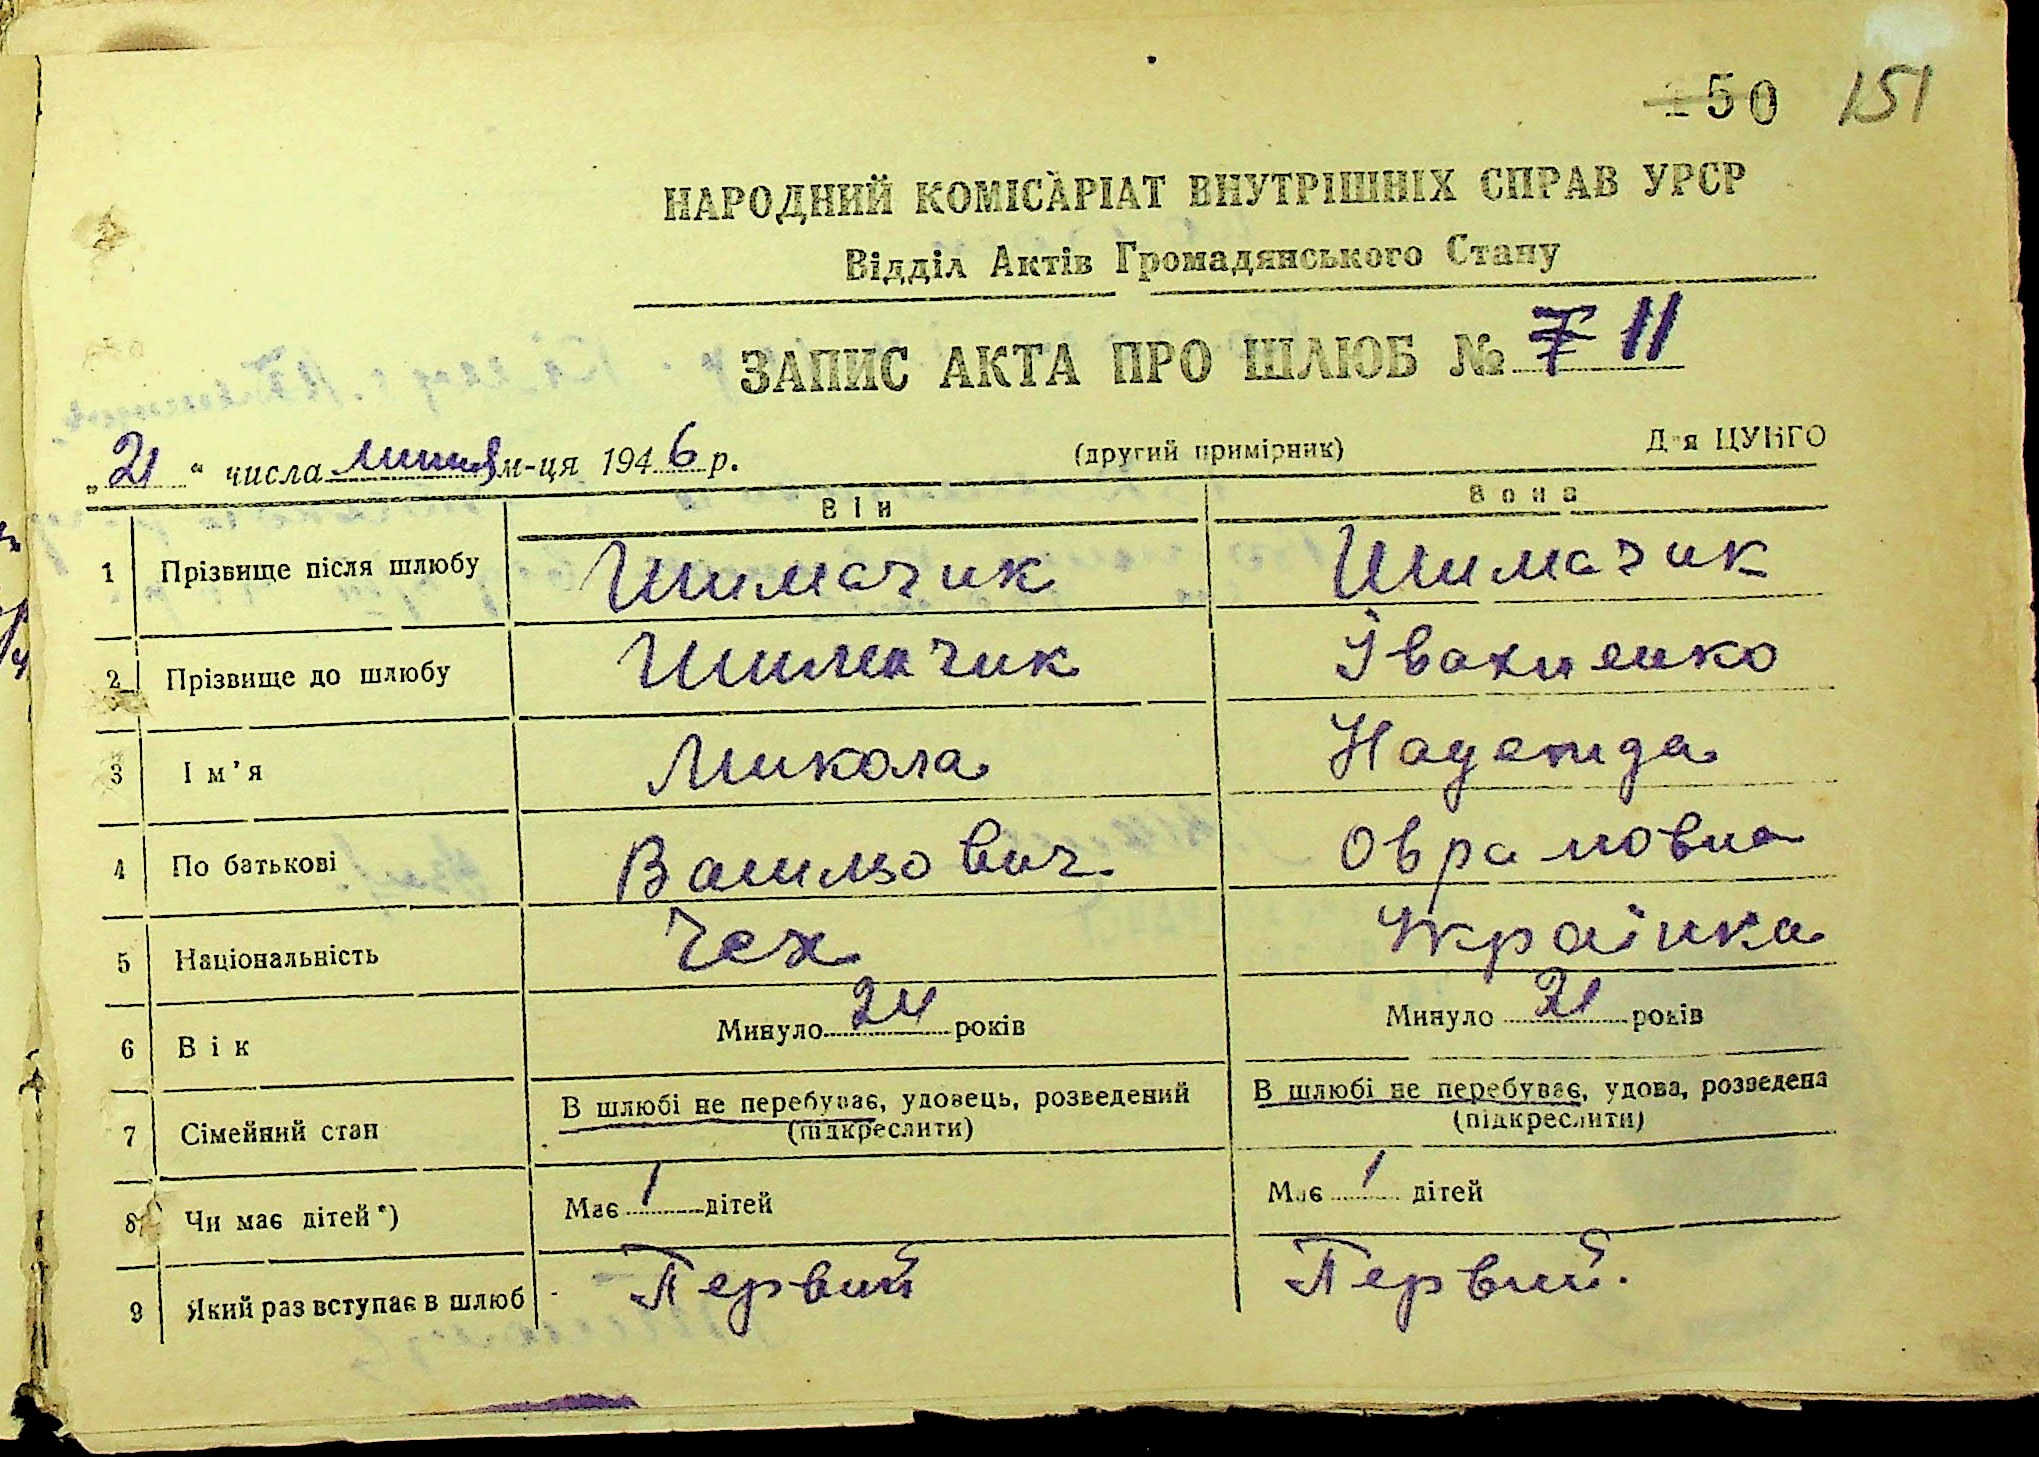 150 151
НАРОДНИЙ КОМІСАРІАТ ВНУТРІШНІХ СПРАВ УРСР
Відділ Актів Громадянського Стану
ЗАПИС АКТА ПРО ШЛЮБ № 7 11
„21“ числа липня м-ця 1946 р. (другий примірник) Для ЦУНГО
Він Вона
1 Прізвище після шлюбу Шимачик Шимачик
2 Прізвище до шлюбу Шимачик Івахненко
3 Ім'я Микола Надежда
4 По батькові Васильович. Оврамовна
5 Національність Чех Українка
6 Вік Минуло 24 років Минуло 21 років
7 Сімейний стан В шлюбі не перебуває, удовець, розведений В шлюбі не перебуває, удова, розведена
(підкреслити) (підкреслити)
8 Чи має дітей*) Має 1 дітей Має 1 дітей
9 Який раз вступає в шлюб Первий Первий.